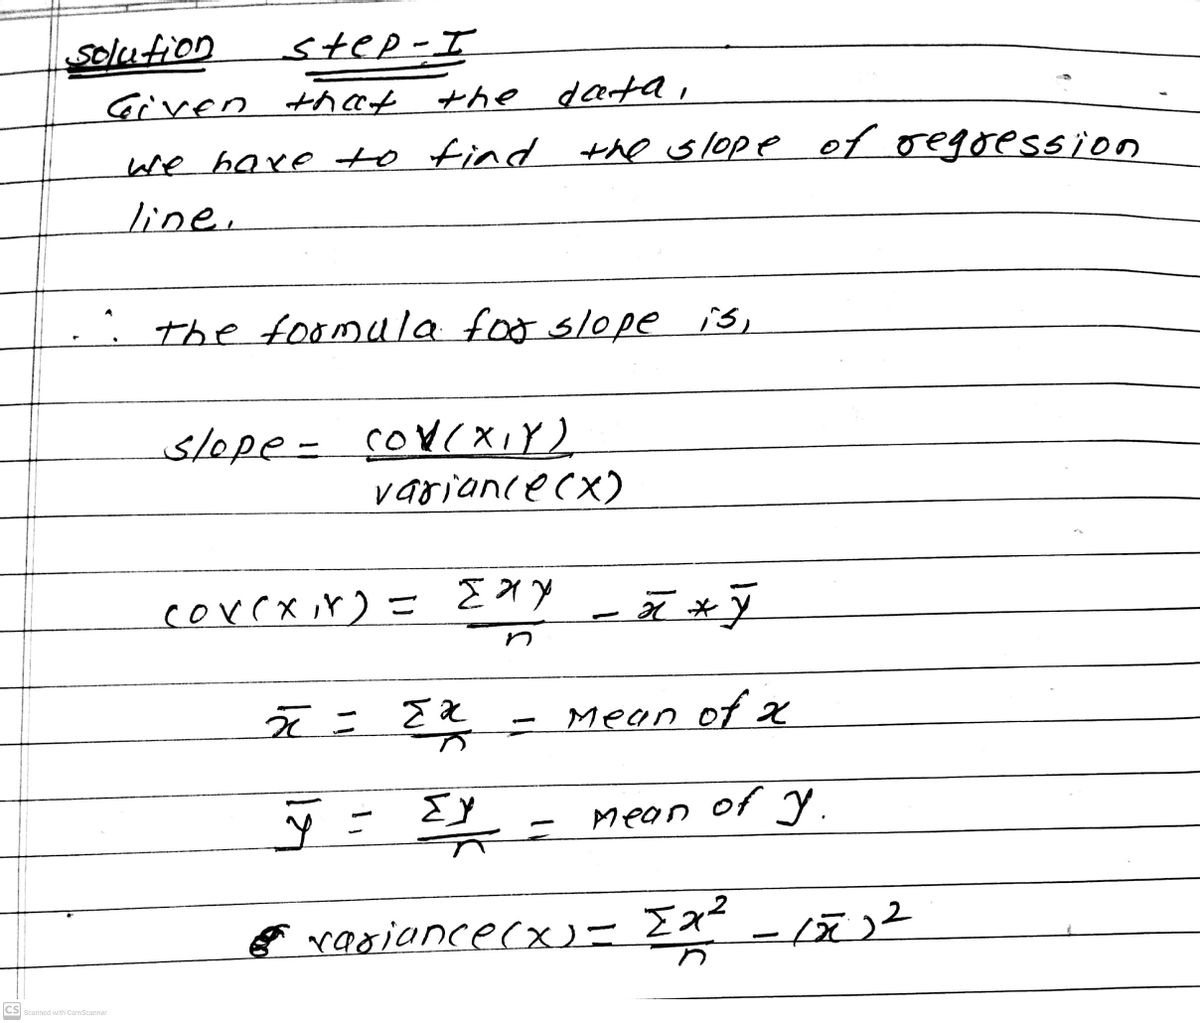 solution step-I
Given that the data,
we have to find the slope of regression
line.
∴ the formula for slope is,
slope = cov(X,Y)
variance(X)
cov(X,Y) = Σxy/n - x̄ * ȳ
x̄ = Σx/n = Mean of x
ȳ = Σy/n = Mean of y.
variance(x) = Σx²/n - (x̄)²
CS Scanned with CamScanner